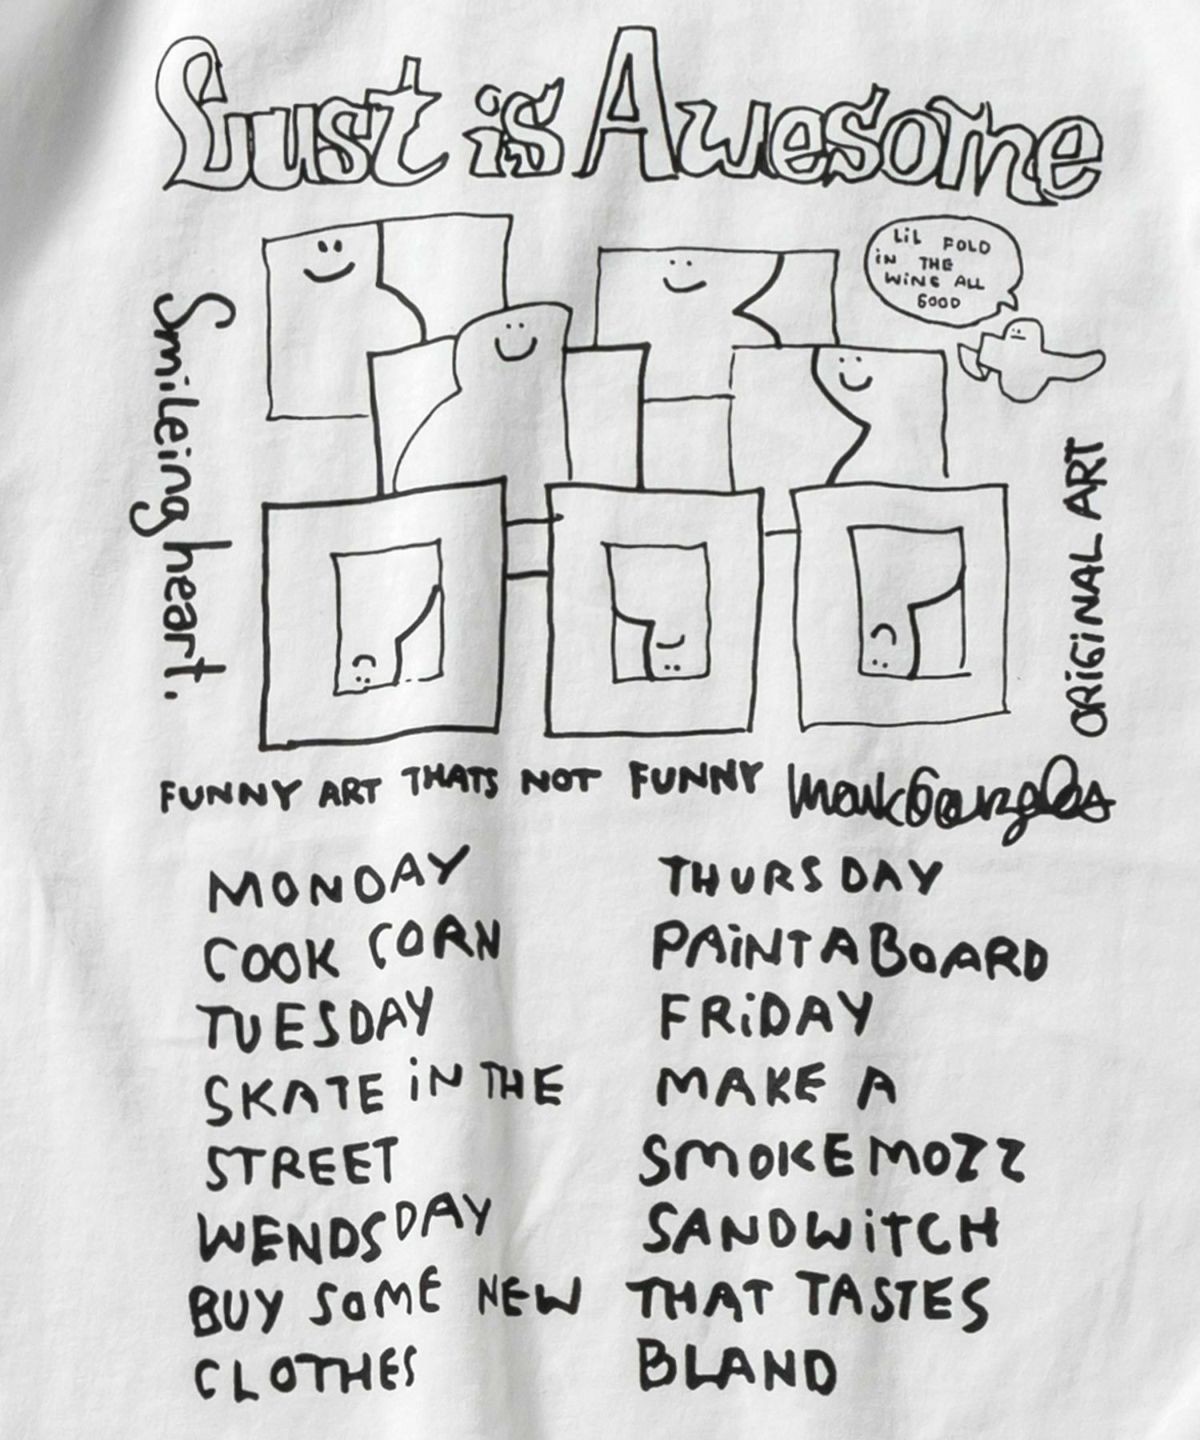 Lust is Awesome
LiL FOLD
iN THE
WING ALL
GOOD
Smileing heart.
ORiGiNAL ART
FUNNY ART THATS NOT FUNNY
Mark Gonzales
MONDAY
COOK CORN
TUESDAY
SKATE iN THE
STREET
WENDSDAY
BUY SOME NEW
CLOTHES
THURSDAY
PAiNT A BOARD
FRiDAY
MAKE A
SMOKE MOZZ
SANDWiTCH
THAT TASTES
BLAND